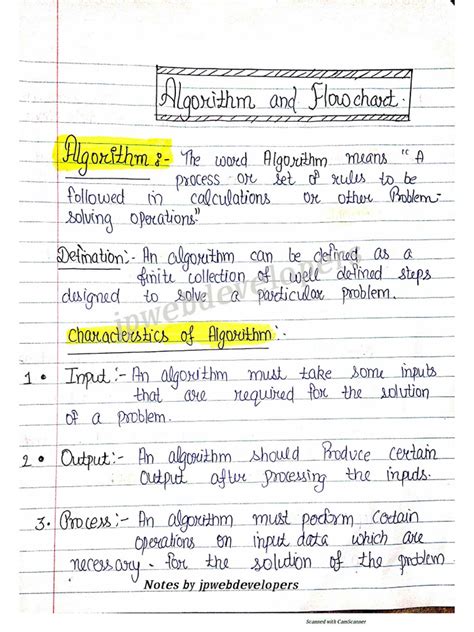 Algorithm and Flowchart.
Algorithm :- The word Algorithm means "A
process or set of rules to be
followed in calculations or other Problem-
solving operations"
Defination :- An algorithm can be defined as a
finite collection of well defined steps
designed to solve a particular problem.
jpwebdevelopers
Characterstics of Algorithm :-
1. Input :- An algorithm must take some inputs
that are required for the solution
of a problem.
2. Output :- An algorithm should Produce certain
Output after processing the inputs.
3. Process :- An algorithm must perform certain
operations on input data which are
necessary for the solution of the problem
Notes by jpwebdevelopers
Scanned with CamScanner